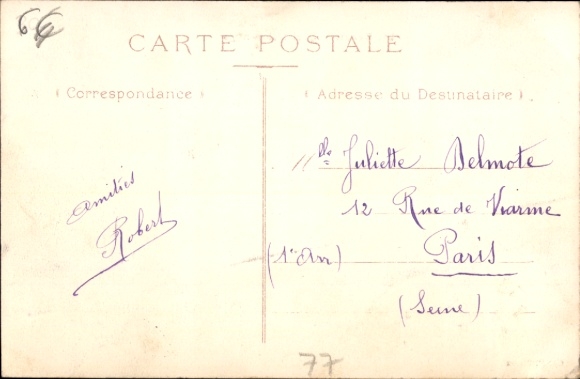 6
CARTE POSTALE
(Correspondance)
(Adresse du Destinataire)
Amitiés
Robert
Mlle Juliette Delmote
12 Rue de Viarme
Paris
(1er Arr)
(Seine)
77